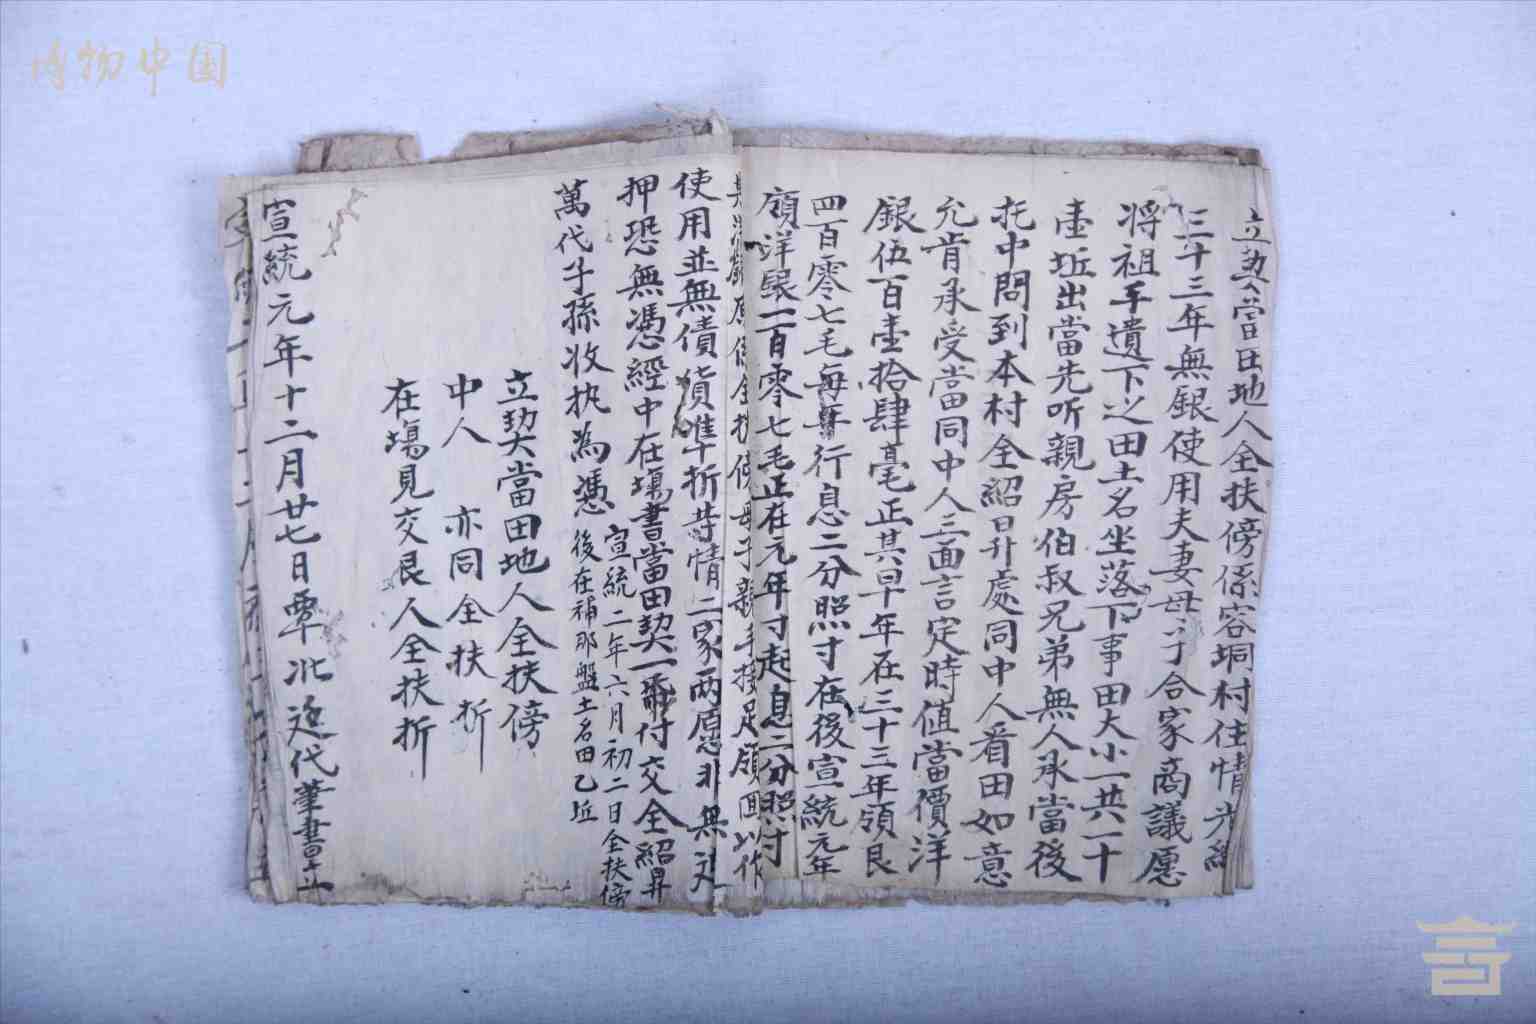 博物中国
立契當田地人全扶傍係容垌村住情光緒
三十三年無銀使用夫妻母子合家商議愿
将祖手遺下之田土名坐落下事田大小一共一十
壹坵出當先听親房伯叔兄弟無人承當後
托中問到本村全紹昇處同中人看田如意
允肯承受當同中人三面言定時值當價洋
銀伍百壹拾肆毫正其早年在三十三年領艮
四百零七毛每年行息二分照寸在後宣統元年
領洋銀一百零七毛正在元年寸起息二分照寸
其洋銀原係全扶傍母子親手接足領回以作
使用並無債貨準折䒭情二家两愿非無迖
押恐無憑經中在塲書當田契一帋付交全紹昇
萬代子孫收执為憑
宣統二年六月初二日全扶傍
後在補那盤土名田乙坵
立契當田地人全扶傍
中人 亦同全扶折
在塲見交艮人全扶折
宣統元年十二月廿七日覃兆廷代筆書立